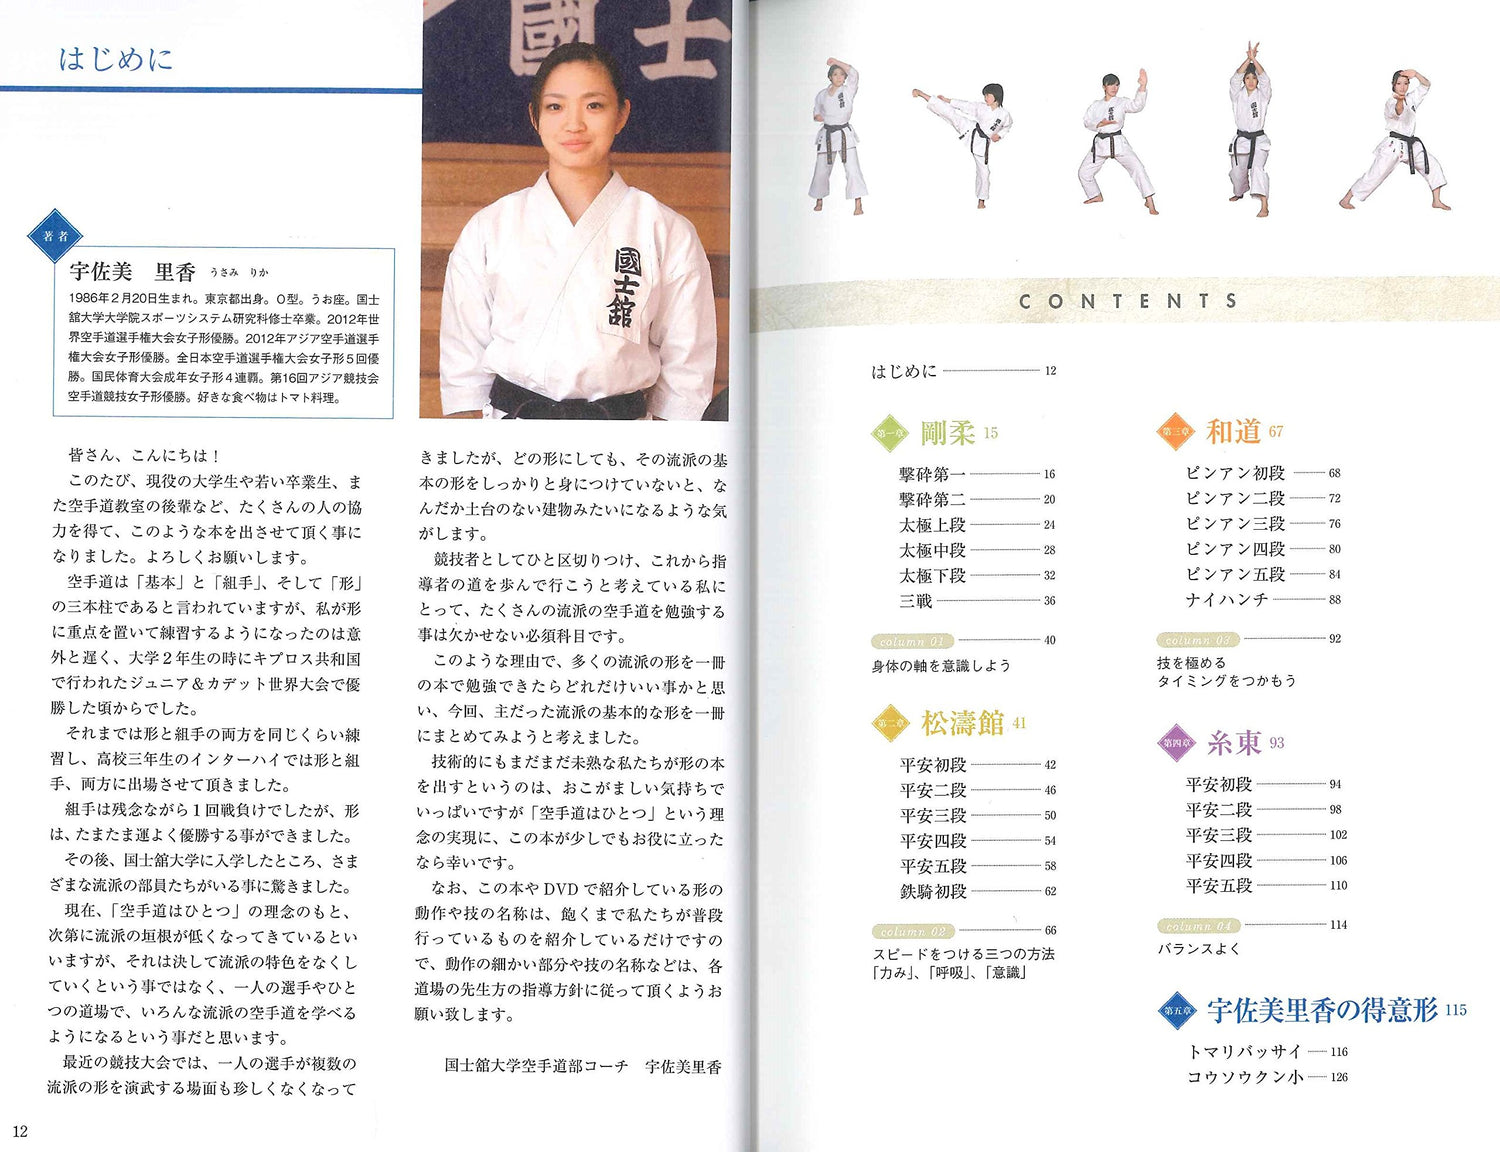 はじめに
國士
國士舘
著者
宇佐美　里香　うさみ　りか
1986年2月20日生まれ。東京都出身。O型。うお座。国士
舘大学大学院スポーツシステム研究科修士卒業。2012年世
界空手道選手権大会女子形優勝。2012年アジア空手道選手
権大会女子形優勝。全日本空手道選手権大会女子形5回優
勝。国民体育大会成年女子形4連覇。第16回アジア競技会
空手道競技女子形優勝。好きな食べ物はトマト料理。
皆さん、こんにちは！
このたび、現役の大学生や若い卒業生、ま
た空手道教室の後輩など、たくさんの人の協
力を得て、このような本を出させて頂く事に
なりました。よろしくお願いします。
空手道は「基本」と「組手」、そして「形」
の三本柱であると言われていますが、私が形
に重点を置いて練習するようになったのは意
外と遅く、大学2年生の時にキプロス共和国
で行われたジュニア＆カデット世界大会で優
勝した頃からでした。
それまでは形と組手の両方を同じくらい練
習し、高校三年生のインターハイでは形と組
手、両方に出場させて頂きました。
組手は残念ながら1回戦負けでしたが、形
は、たまたま運よく優勝する事ができました。
その後、国士舘大学に入学したところ、さま
ざまな流派の部員たちがいる事に驚きました。
現在、「空手道はひとつ」の理念のもと、
次第に流派の垣根が低くなってきているとい
いますが、それは決して流派の特色をなくし
ていくという事ではなく、一人の選手やひと
つの道場で、いろんな流派の空手道を学べる
ようになるという事だと思います。
最近の競技大会では、一人の選手が複数の
流派の形を演武する場面も珍しくなくなって
きましたが、どの形にしても、その流派の基
本の形をしっかりと身につけていないと、な
んだか土台のない建物みたいになるような気
がします。
競技者としてひと区切りつけ、これから指
導者の道を歩んで行こうと考えている私に
とって、たくさんの流派の空手道を勉強する
事は欠かせない必須科目です。
このような理由で、多くの流派の形を一冊
の本で勉強できたらどれだけいい事かと思
い、今回、主だった流派の基本的な形を一冊
にまとめてみようと考えました。
技術的にもまだまだ未熟な私たちが形の本
を出すというのは、おこがましい気持ちで
いっぱいですが「空手道はひとつ」という理
念の実現に、この本が少しでもお役に立った
なら幸いです。
なお、この本やDVDで紹介している形の
動作や技の名称は、飽くまで私たちが普段
行っているものを紹介しているだけですの
で、動作の細かい部分や技の名称などは、各
道場の先生方の指導方針に従って頂くようお
願い致します。
国士舘大学空手道部コーチ　宇佐美里香
12
CONTENTS
はじめに 12
第一章 剛柔 15
撃砕第一 16
撃砕第二 20
太極上段 24
太極中段 28
太極下段 32
三戦 36
column 01 40
身体の軸を意識しよう
第二章 松濤館 41
平安初段 42
平安二段 46
平安三段 50
平安四段 54
平安五段 58
鉄騎初段 62
column 02 66
スピードをつける三つの方法
「力み」、「呼吸」、「意識」
第三章 和道 67
ピンアン初段 68
ピンアン二段 72
ピンアン三段 76
ピンアン四段 80
ピンアン五段 84
ナイハンチ 88
column 03 92
技を極める
タイミングをつかもう
第四章 糸東 93
平安初段 94
平安二段 98
平安三段 102
平安四段 106
平安五段 110
column 04 114
バランスよく
第五章 宇佐美里香の得意形 115
トマリバッサイ 116
コウソウクン小 126